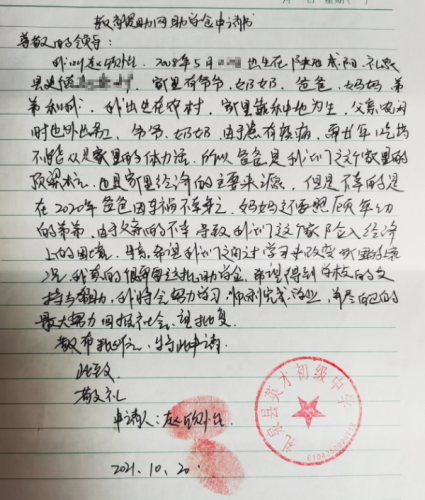 救帮助网助学金申请书
尊敬的领导:
我叫赵欣怡, 2008年5月 出生在陕西咸阳礼泉
县 , 家里有爷爷, 奶奶, 爸爸, 妈妈, 弟
弟和我, 我出生在农村, 家里靠种地为生, 父亲农闲
时也外出务工, 爷爷, 奶奶由于患有疾病, 再
不能从事家里的体力活, 所以爸爸是我们这个家里的
顶梁柱, 也是家里经济的主要来源, 但是不幸的是
在2020年爸爸因车祸不幸去世, 妈妈还要照顾年幼
的弟弟, 由于父亲的不幸导致我们这个家陷入经济
上的困境, 希望我们通过学习来改变家里的
况, 我真的很需要这批助学金, 希望得到学校的支
持与帮助, 我将会努力学习, 完成学业, 并尽自己的
最大努力回报社会, 望批复
敬希批准, 特此申请
此致
敬礼
申请人: 赵欣怡
礼泉县英才初级中学
2021.10.20